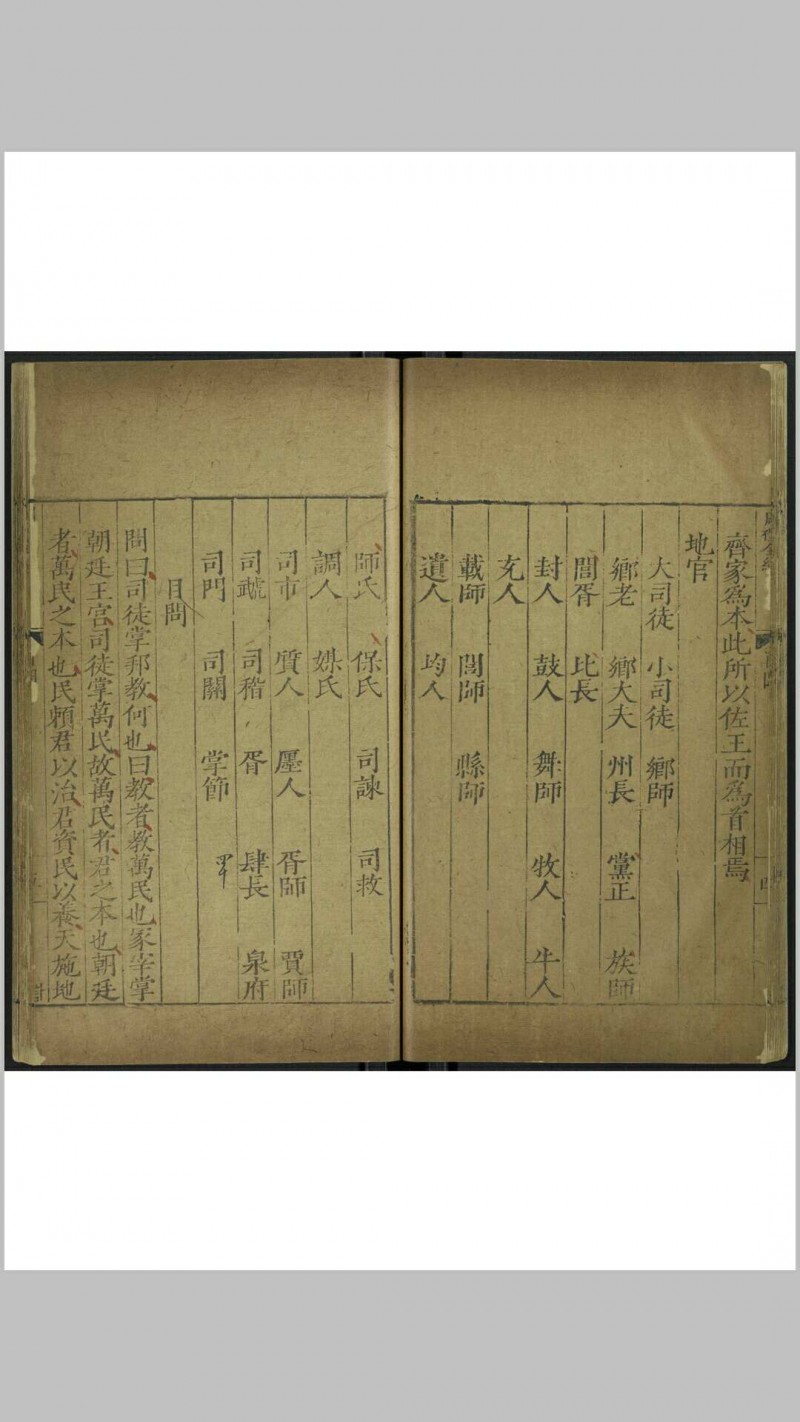 齊家爲本此所以佐王而爲首相焉
地官
大司徒 小司徒 鄉師
鄉老 鄉大夫 州長 黨正 族師
閭胥 比長
封人 鼓人 舞師 牧人 牛人
充人
載師 閭師 縣師
遺人 均人
師氏 保氏 司諫 司救
調人 媒氏
司市 質人 廛人 胥師 賈師
司虣 司稽 胥 肆長 泉府
司門 司關 掌節
目問
問曰司徒掌邦教何也曰教者教萬民也冢宰掌
朝廷王宮司徒掌萬民故萬民者君之本也朝廷
者萬民之本也民頼君以治君資民以養天施地